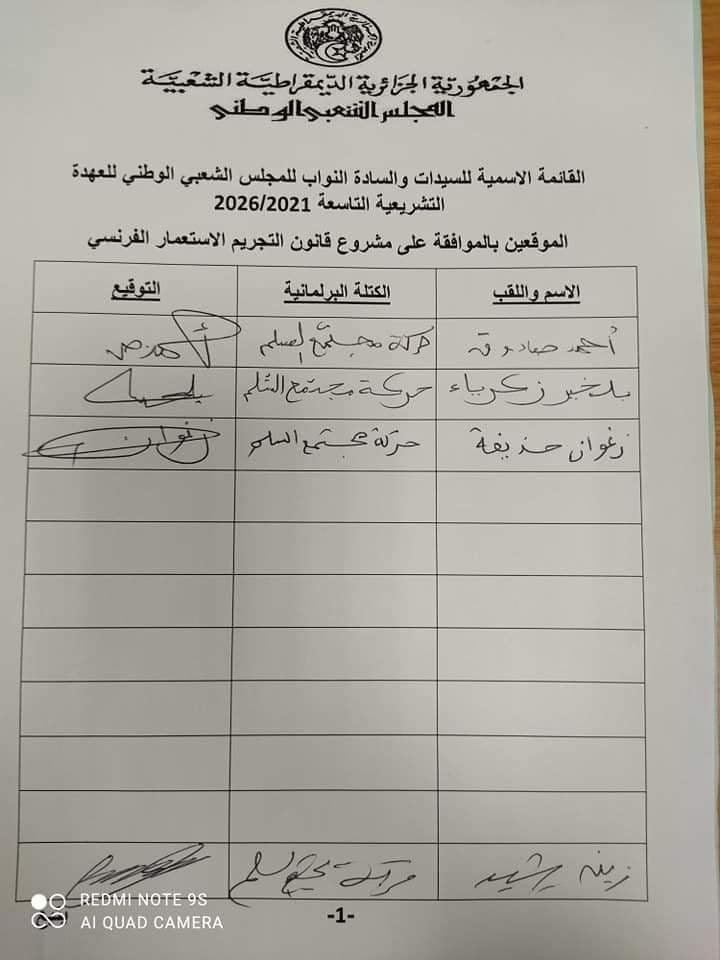 الجمهورية الجزائرية الديمقراطية الشعبية
المجلس الشعبي الوطني
القائمة الاسمية للسيدات والسادة النواب للمجلس الشعبي الوطني للعهدة
التشريعية التاسعة 2026/2021
الموقعين بالموافقة على مشروع قانون التجريم الاستعمار الفرنسي
الاسم واللقب الكتلة البرلمانية التوقيع
أحمد صادوق حركة مجتمع السلم
بلخير زكرياء حركة مجتمع السلم
زغوان حذيفة حركة مجتمع السلم زغوان
زين رشيد حركة مجتمع السلم
-1-
REDMI NOTE 9S
AI QUAD CAMERA